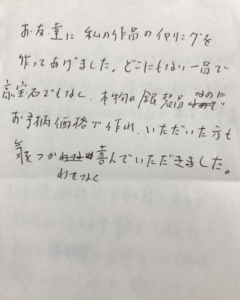 お友達に私の作品のイヤリングを
作ってあげました。どこにもない一品で
宝石でもなく、本物の銀製品なのに
お手柄価格で作れ、いただいた方も
気をつか 喜んでいただきました。
わせなく